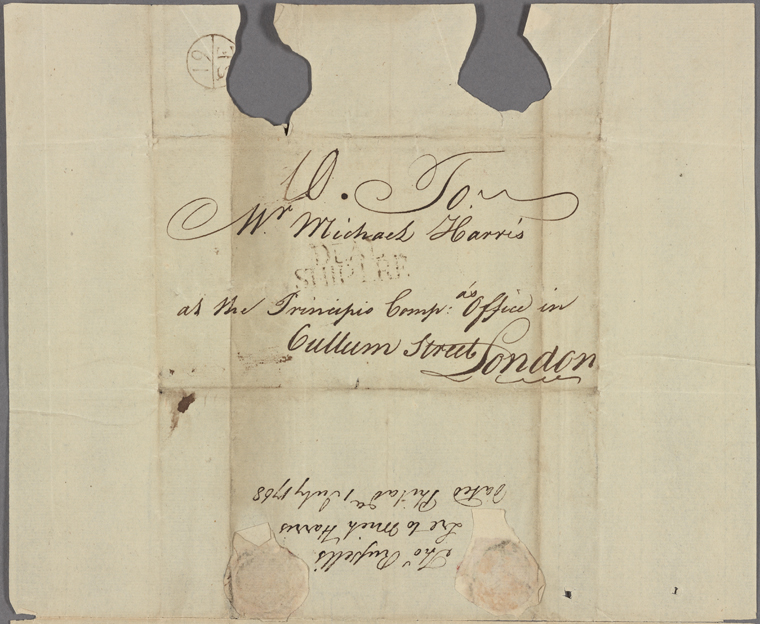 19
10. To.
Mr. Michael Harris
DEAL
SHIP LRE
at the Principio Comp:as Office in
Cullum Street London
Thos Russell's
Lre to Mich Harris
Dated Philada 1 July 1768